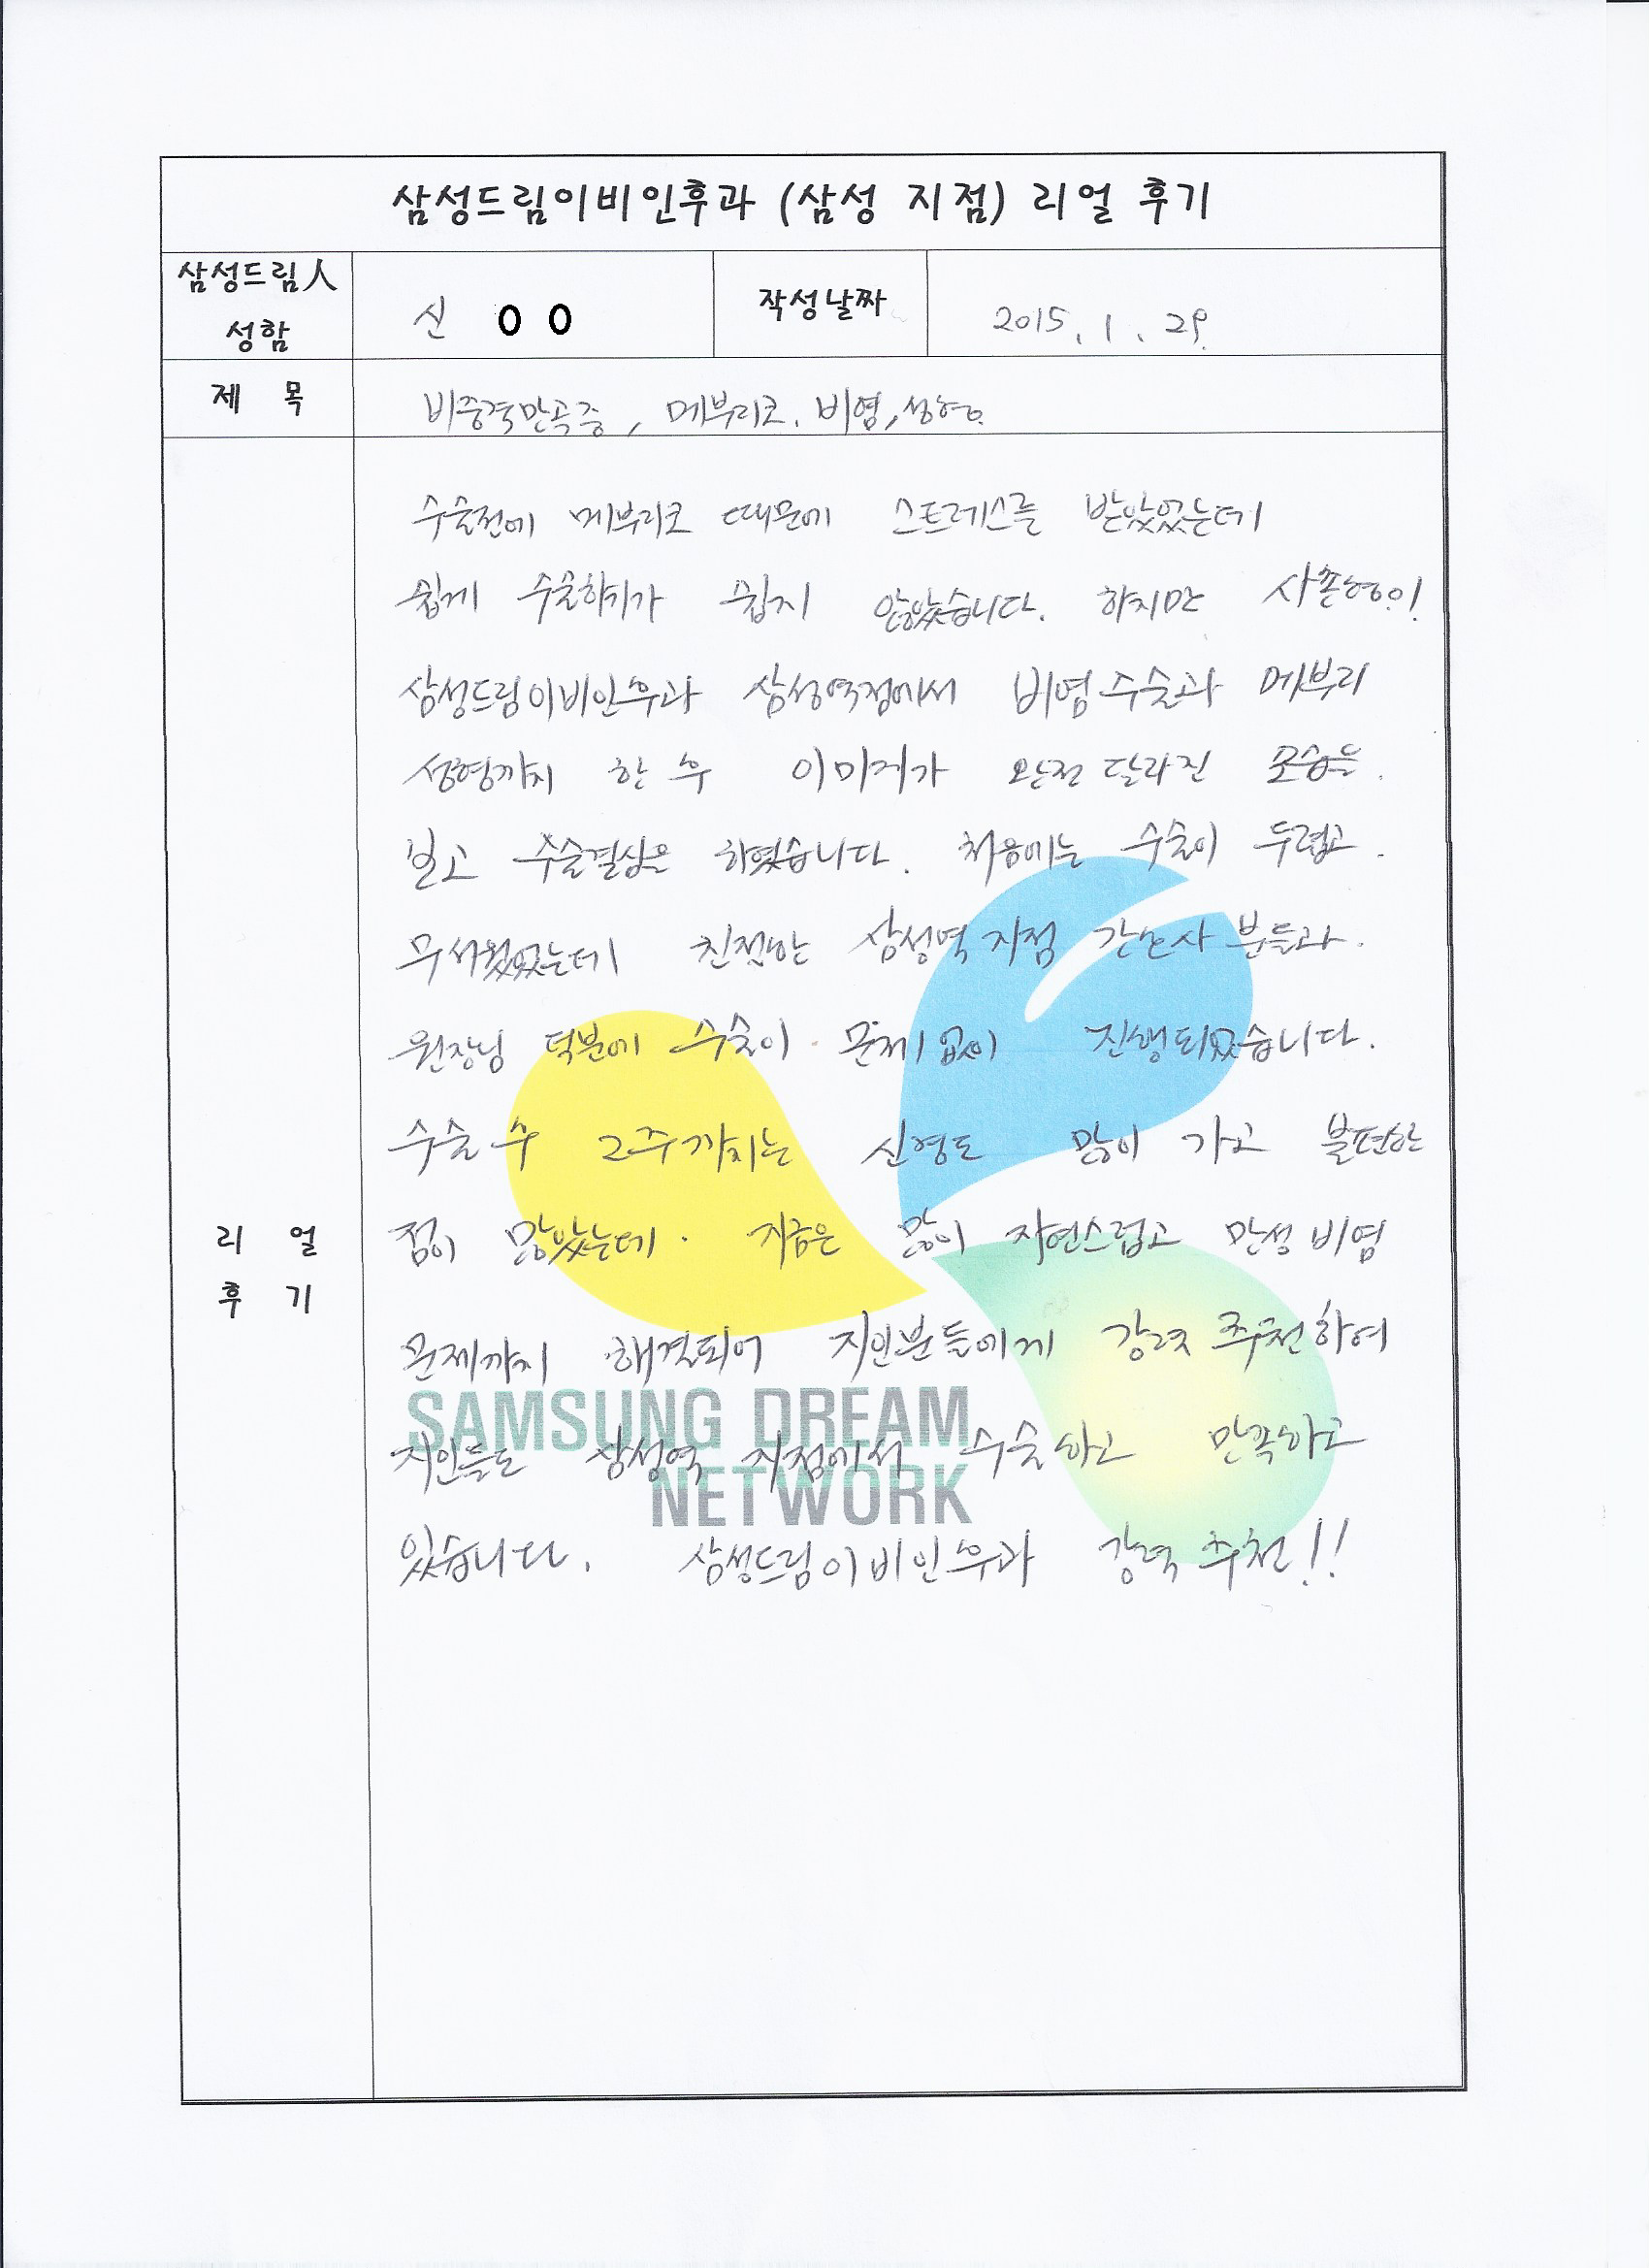 삼성드림이비인후과 (삼성 지점) 리얼 후기
삼성드림人
성함
신 O O
작성날짜
2015. 1. 29.
제 목
비중격만곡증, 메부리코. 비염, 성형.
수술전에 메부리코 때문에 스트레스를 받았었는데
쉽게 수술하기가 쉽지 않았습니다. 하지만 사촌형이
삼성드림이비인후과 삼성역점에서 비염수술과 메부리
성형까지 한 후 이미지가 완전 달라진 모습을
보고 수술결심을 하였습니다. 처음에는 수술이 두렵고
무서웠었는데 친절한 삼성역 지점 간호사 분들과
원장님 덕분에 수술이 문제없이 진행되었습니다.
수술 후 2주까지는 신경도 많이 가고 불편한
점이 많았는데. 지금은 많이 자연스럽고 만성 비염
리 얼
후 기
문제까지 해결되어 지인분들에게 강력 추천하여
지인들도 삼성역 지점에서 수술하고 만족하고
있습니다. 삼성드림이비인후과 강력 추천!!
SAMSUNG DREAM
NETWORK